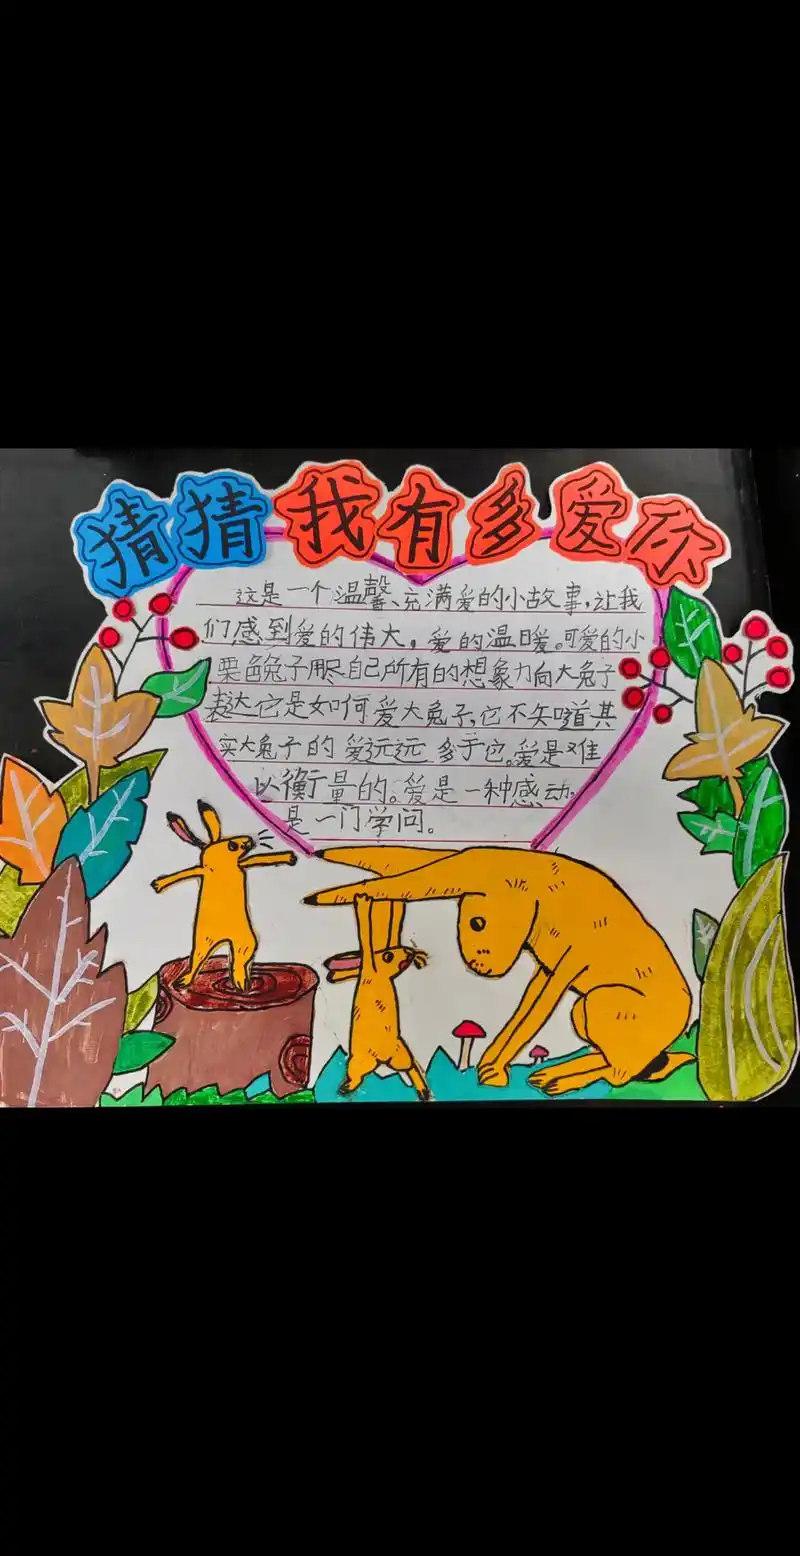 猜猜我有多爱你
这是一个温馨、充满爱的小故事，让我
们感到爱的伟大，爱的温暖。可爱的小
栗色兔子用尽自己所有的想象力向大兔子
表达它是如何爱大兔子，它不知道其
实大兔子的爱远远多于它。爱是难
以衡量的。爱是一种感动。
是一门学问。